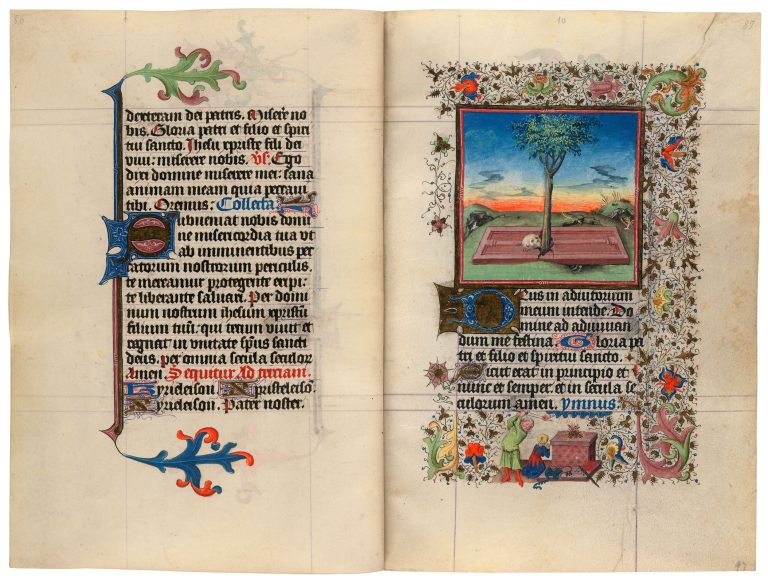 80
dexteram dei patris. Misere no
bis. Gloria patri et filio et spiri
tu sancto. Jhesu xpriste fili dei
viui: miserere nobis. Vs. Ego
dixi domine miserere mei: sana
animam meam quia peccaui
tibi. Oremus: Collecta:
Subueniat nobis domi
ne misericordia tua vt
ab imminentibus pec
catorum nostrorum periculis.
te mereamur protegente eripi.
te liberante saluari. Per domi
num nostrum ihesum xpristū
filium tuū: qui tecum viuit et
regnat in vnitate spūs sancti
deus. per omnia secula seculor
Amen. Sequitur ad terciam.
Kyrieleison. Xpisteleisō
Kyrieleison. Pater noster.
10
87
Deus in adiutorium
meum intende. Do
mine ad adiuuan
dum me festina. Gloria pa
tri et filio et spiritui sancto.
Sicut erat in principio et
nunc et semper. et in secula se
culorum amen. ymnus.